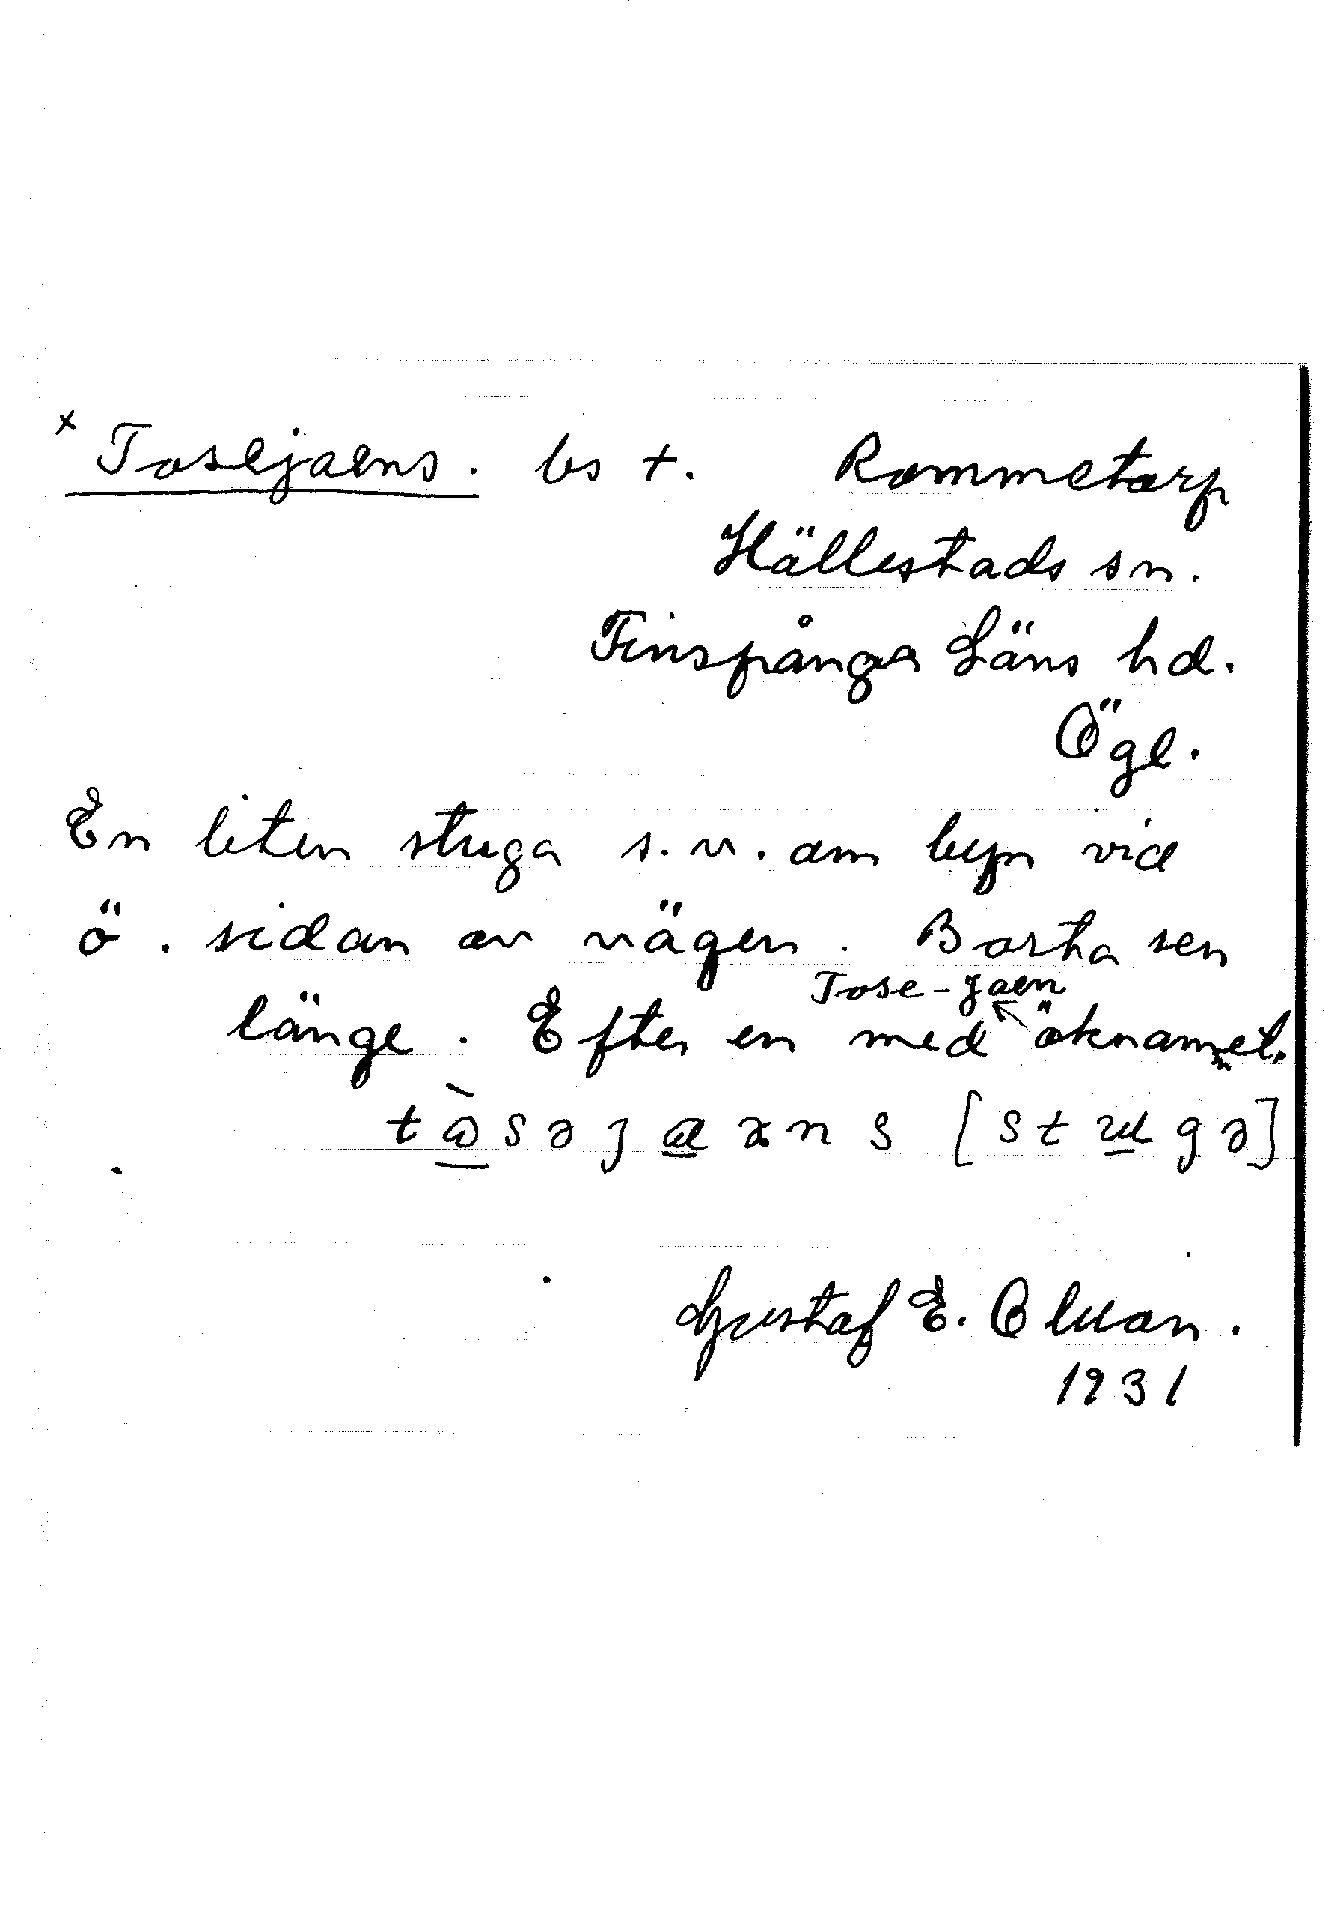 x Tosejaens. bs +. Rommetorp
Hällestads sn.
Finspånga Läns hd.
Ögl.
En liten stuga s.v. om byn vid
ö. sidan av vägen. Borta sen
Tose-jaen
länge. Efter en med öknamnet.
[stugə]
Gustaf E. Olwán.
1931